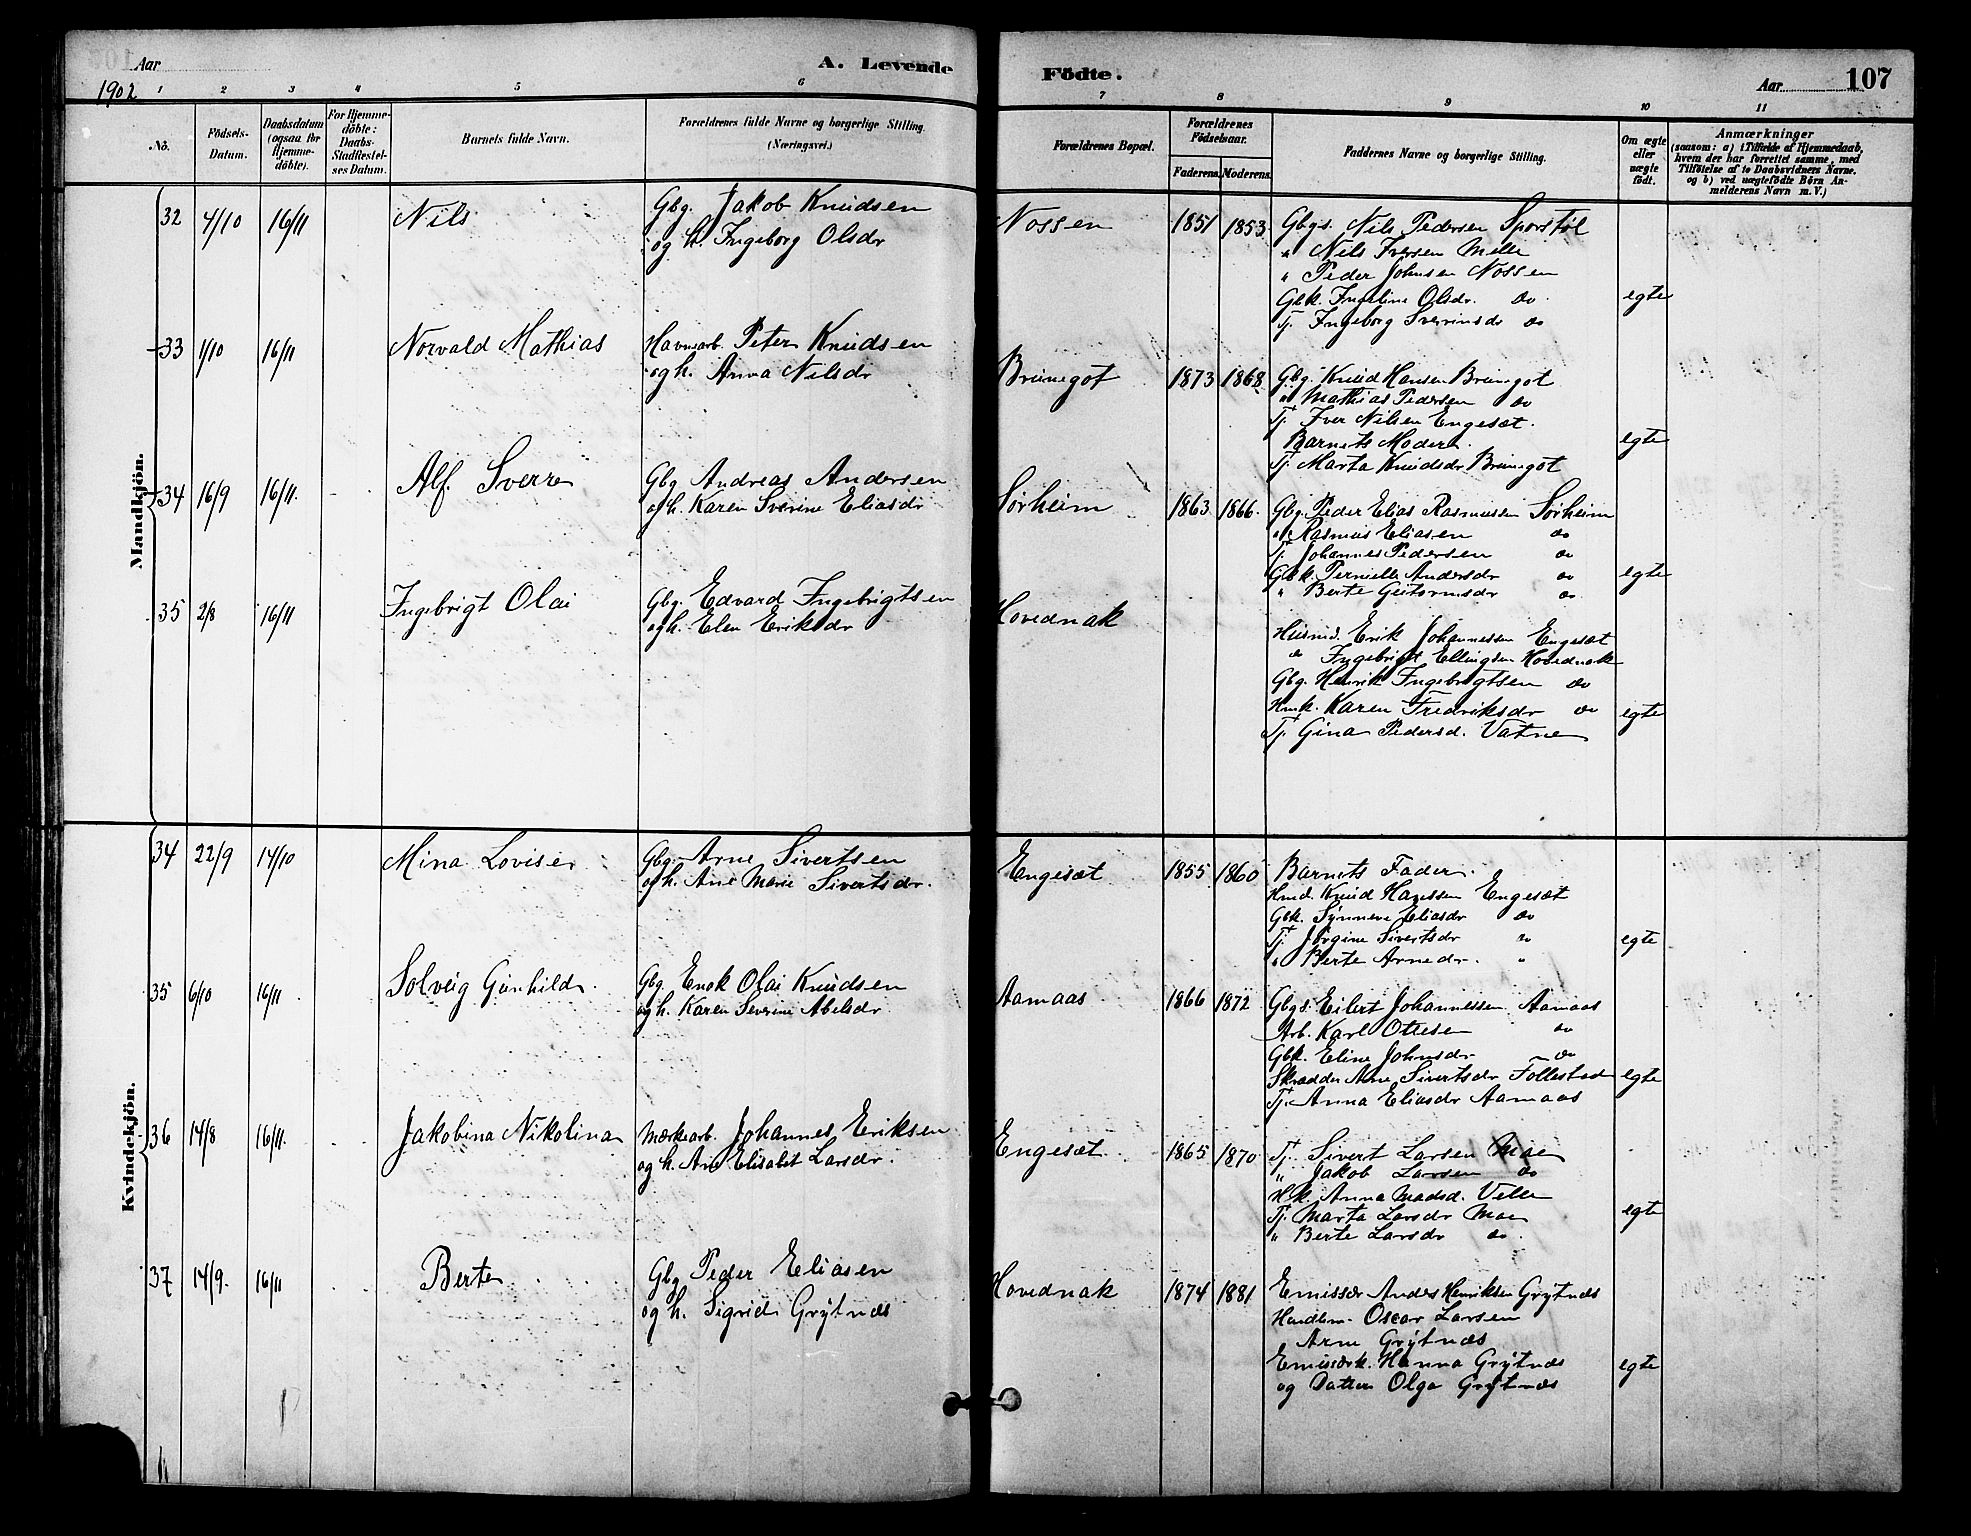 Aar
1902
A. Levende
1 2 3 4 5 6
No.
Födsels-
Datum.
Daabsdatum
(ogsaa for
Hjemme-
döbte).
For Hjemme-
döbte:
Daabs-
Stadfæstel-
ses Datum.
Barnets fulde Navn.
Forældrenes fulde Navne og borgerlige Stilling.
(Næringsvei.)
Mandkjön.
32 4/10 16/11 Nils Gbg. Jakob Knudsen
og h. Ingeborg Olsdr
33 1/10 16/11 Norvald Mathias Havnearb. Peter Knudsen
og h. Anna Nilsdr
34 16/9 16/11. Alf Sverre Gbg Andreas Andersen
og h. Karen Sverine Eliasdr
35 2/8 16/11 Ingebrigt Olai Gbg. Edvard Ingebrigtsen
og h. Elen Eriksdr
Kvindekjön.
34 22/9 14/10 Mina Lovise Gbg. Arne Sivertsen
og h. Ane Marie Sivertsdr.
35 6/10 16/11 Solveig Gunhild Gbg. Enok Olai Knudsen
og h. Karen Severine Abelsdr
36 14/8 16/11. Jakobina Nikolina Mærkearb. Johannes Eriksen
og h. Ane Elisabet Larsdr.
37 14/9. 16/11 Berte Gbg Peder Eliasen
og h. Sigrid Grýtnæs
Födte.
Aar 107
7 8 9 10 11
Forældrenes Bopæl.
Forældrenes
Födselsaar.
Faderens. Moderens.
Faddernes Navne og borgerlige Stilling.
Om ægte
eller
uægte
födt.
Anmærkninger
(saasom: a) i Tilfælde af Hjemmedaab,
hvem der har forrettet samme, med
Tilföielse af to Daabsvidners Navne.
og b) ved uægtefödte Börn An-
melderens Navn m. V.)
Nossen 1851 1853 Gbgs. Nils Pedersen Sporstøl
" Nils Iversen Melle
" Peder Johnsen Nossen
Gbk. Ingeline Olsdr. do egte
Tj. Ingeborg Sverinsdr do
Brunegot 1873 1868 Gbg. Knud Hansen Brunegot
" Mathias Pedersen do
Tj. Iver Nilsen Engesæt.
Barnets Moder. egte
Tj. Marta Knudsdr Brunegot
Sørheim 1863 1866. Gbg. Peder Elias Rasmussen Sørheim
" Rasmus Eliasen do
Tj. Johannes Pedersen do
Gbk. Pernille Andersdr do egte
" Berte Guttormsdr do
Hovednak
Husmd. Erik Johannessen Engesæt
do Ingebrigt Ellingsen Hovednak
Gbg. Henrik Ingebrigtsen do
Hmk. Karen Fredriksdr do egte
Tj. Gina Pedersd. Vatne
Engesæt 1855 1860 Barnets Fader.
Hmd. Knud Hanssen Engesæt
Gbk. Synneve Eliasdr do
Tj. Jørgine Sivertsdr " egte
" Berte Arnedr. "
Aamaas 1866 1872 Gbgs. Eilert Johannessen Aamaas
Arb. Karl Ottesen do
Gbk. Eline Johnsdr do
Skrædder Ane Sivertsdr Follestad egte
Tj. Anna Eliasdr Aamaas
Engesæt 1865 1870 Tj. Sivert Larsen Moe
" Jakob Larsen do
Hk. Anna Madsd. Velle
Tj. Marta Larsdr Moe egte
" Berte Larsdr do.
Hovednak 1874 1881 Emissær Anders Henriksen Grýtnæs
Handlem. Oscar Larsen
Arne Grýtnæs
Emissærk. Hanna Grýtnæs egte
og Datter Olga Grýtnæs